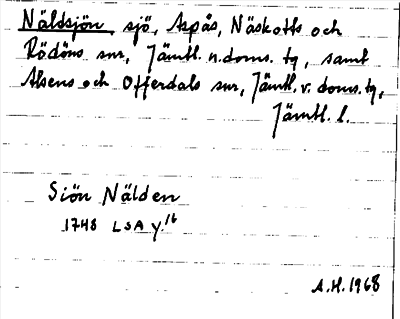 Näldsjön sjö, Aspås, Näskotts och
Rödöns snr, Jämtl. n. doms. tg, samt
Alsens och Offerdals snr, Jämtl. v. doms. tg,
Jämtl. l.
Siön Nälden
1748 LSA y.16
A.H. 1968